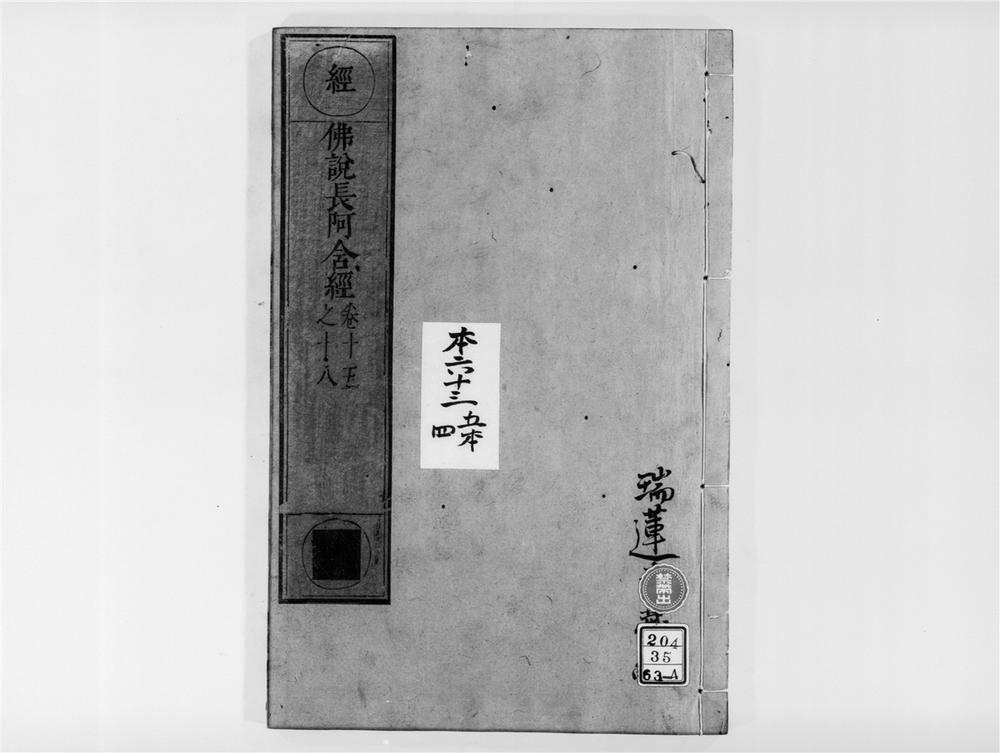 經
佛說長阿含經
卷十五
之十八
本六十三
五本
四
瑞蓮
禁帶出
204
35
63-A